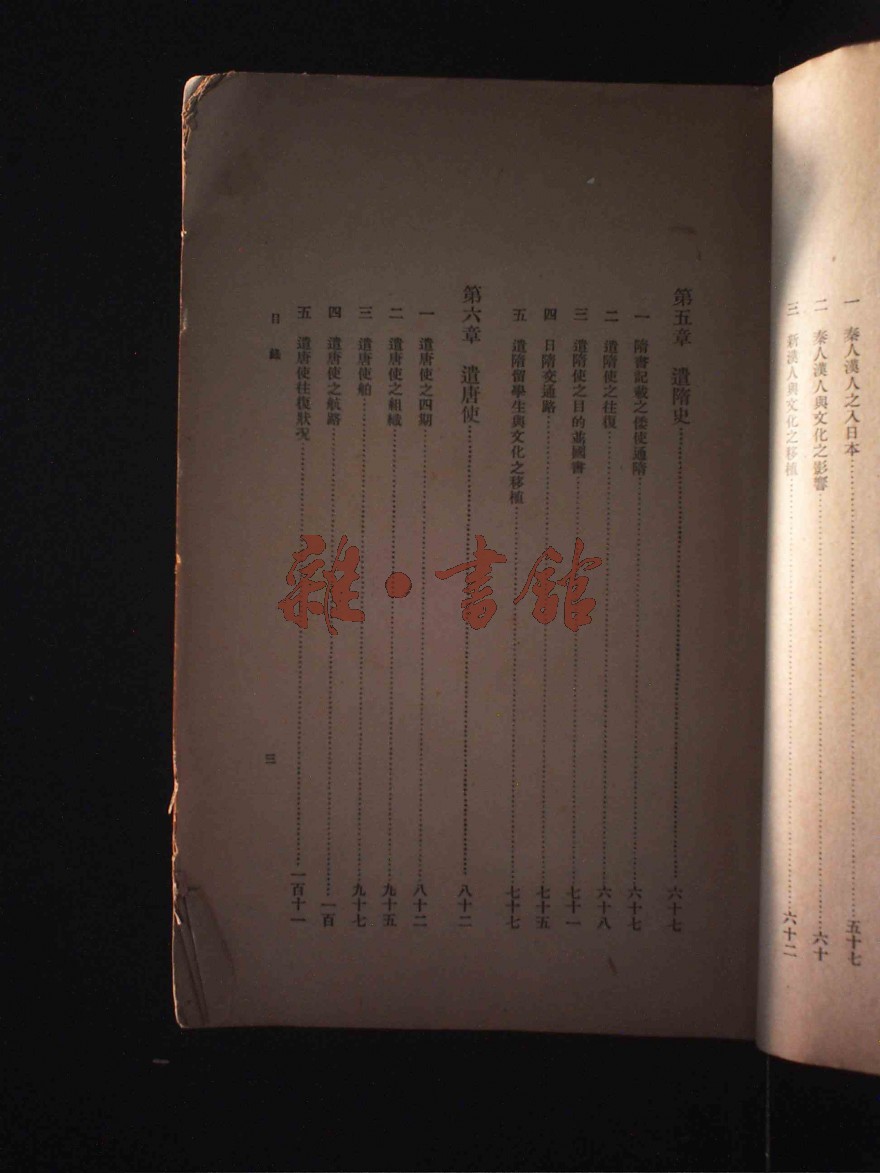 一 秦人漢人之入日本……五十七
二 秦人漢人與文化之影響……六十
三 新漢人與文化之移植……六十二
第五章 遣隋史……六十七
一 隋書記載之倭使通隋……六十七
二 遣隋使之往復……六十八
三 遣隋使之目的並國書……七十一
四 日隋交通路……七十五
五 遣隋留學生與文化之移植……七十七
第六章 遣唐使……八十二
一 遣唐使之四期……八十二
二 遣唐使之組織……九十五
三 遣唐使舶……九十七
四 遣唐使之航路……一百
五 遣唐使往復狀況……一百十一
目錄
三
雜·書館